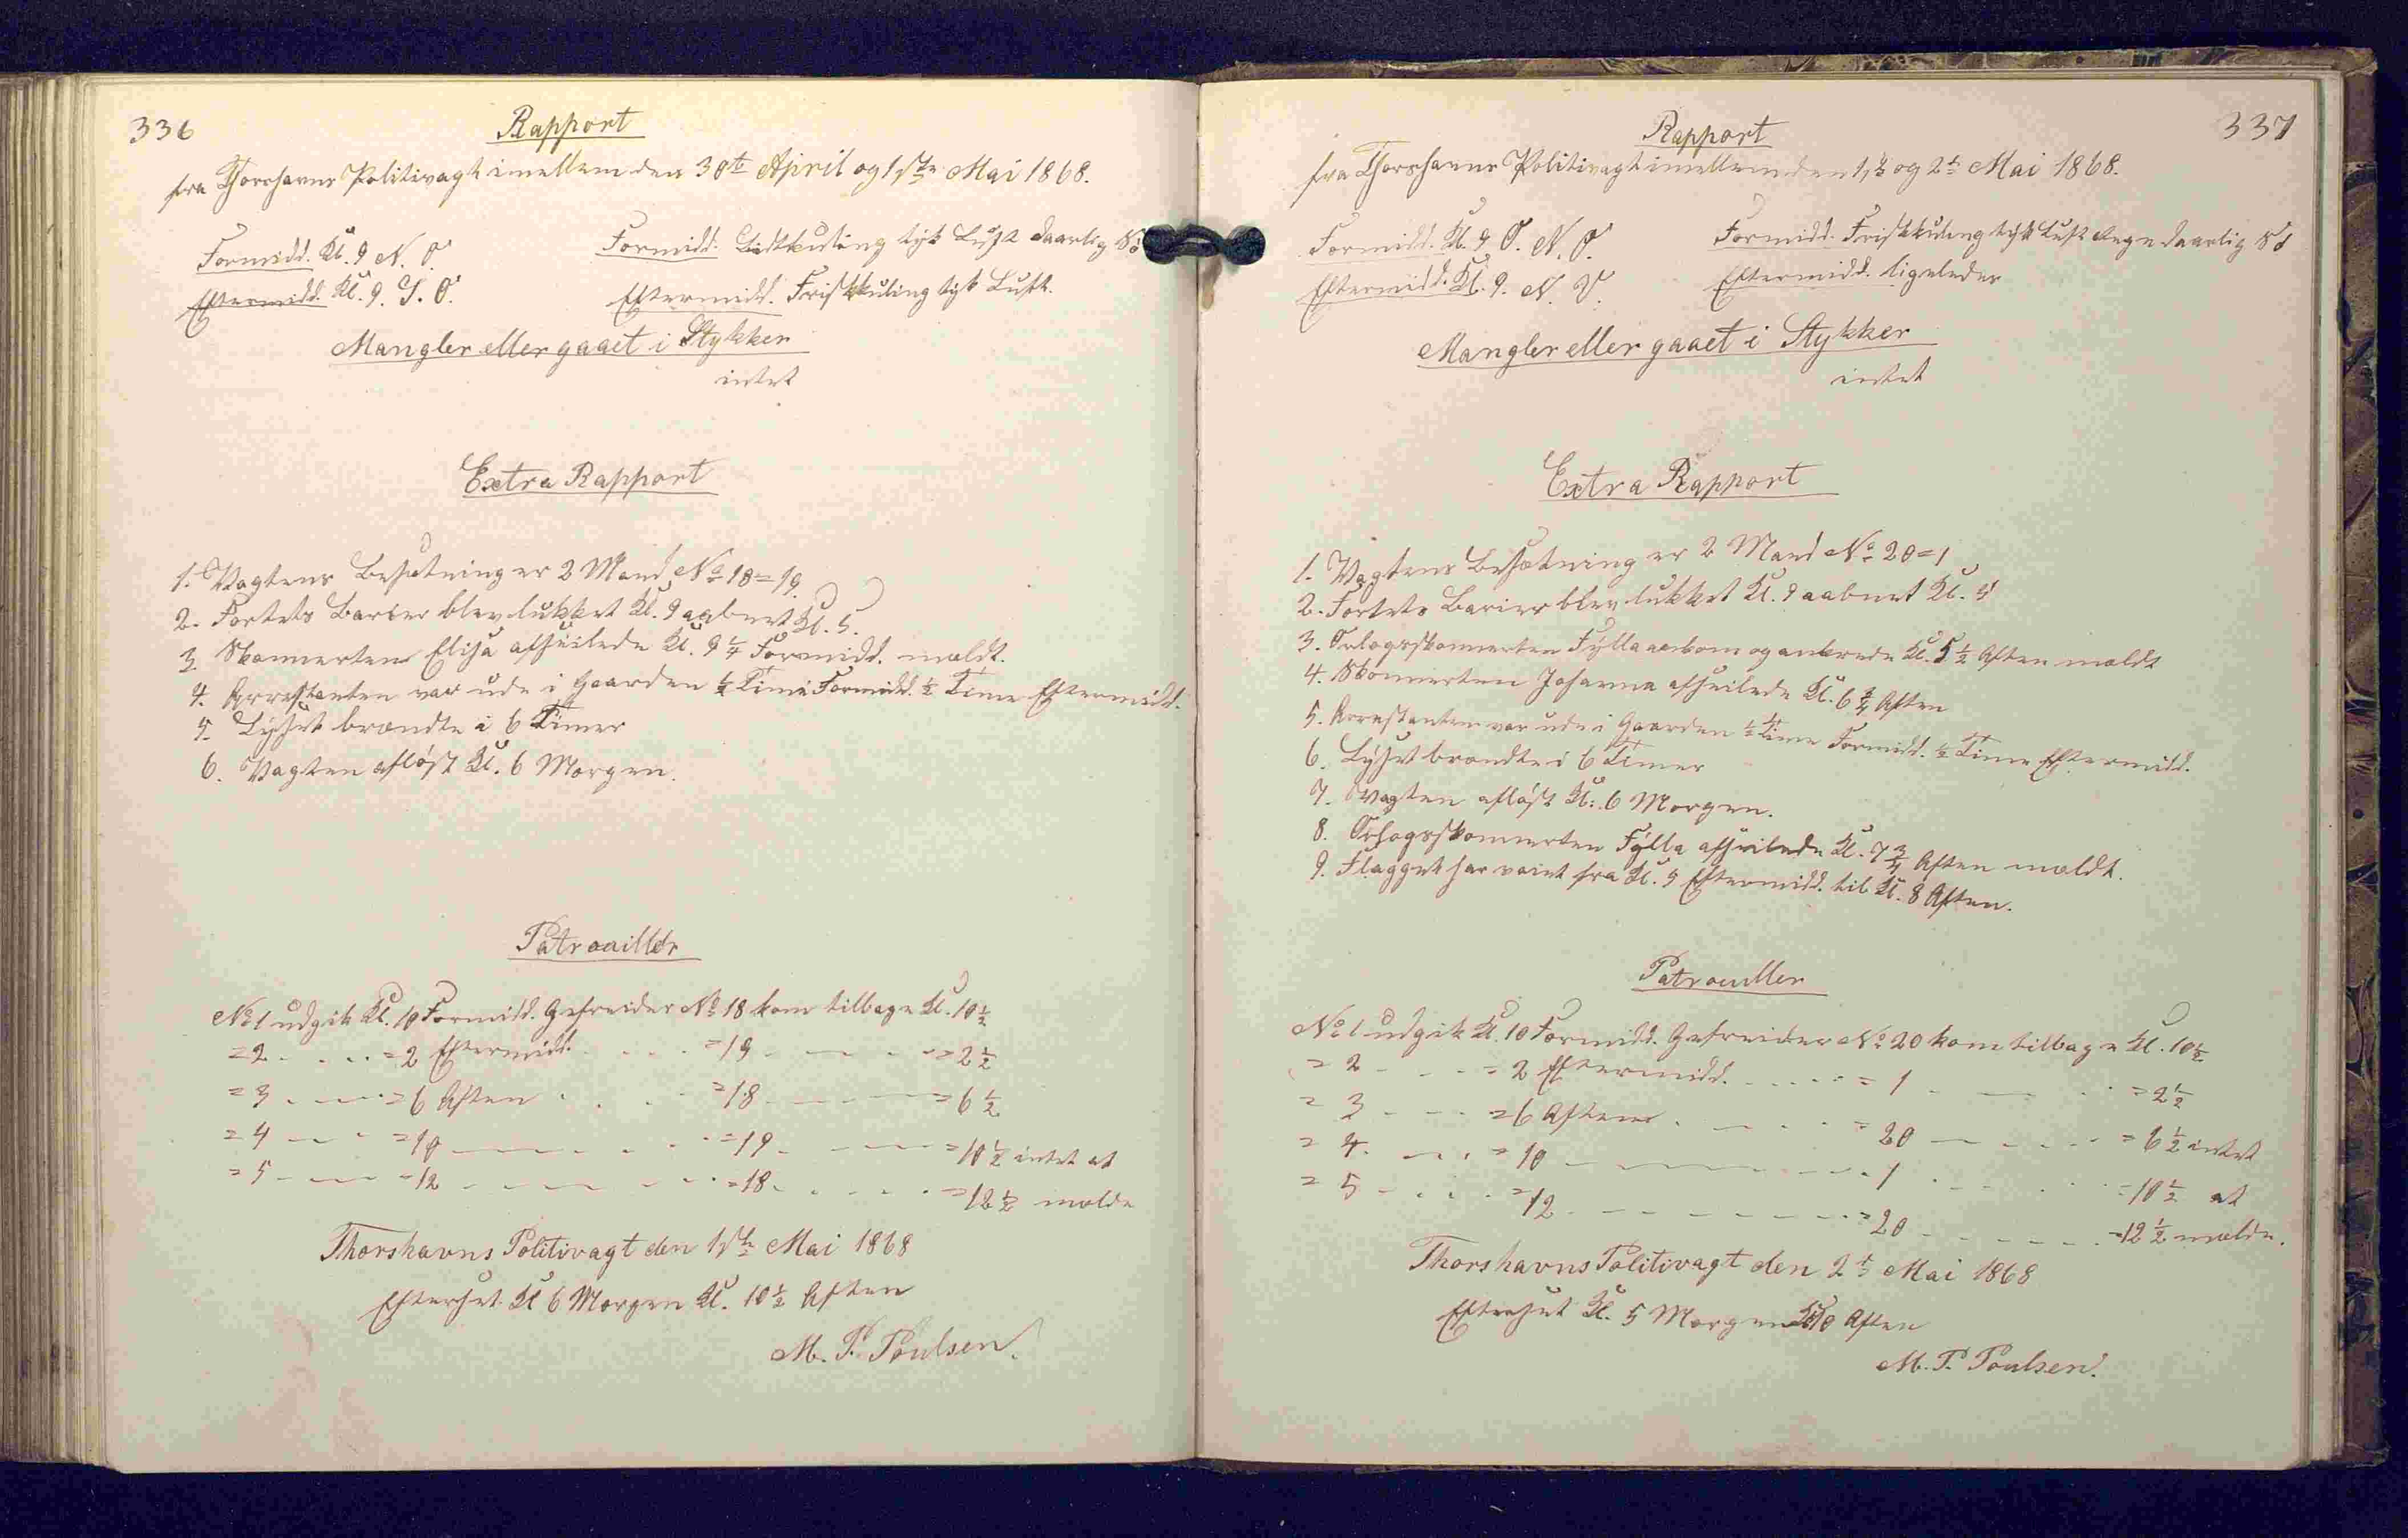 336
Rapport
fra Thorshavns Politivagt imellem den 30te April og 1ste Mai 1868.
Formidd. Kl. 9 N. O.
Formidd. Lidtkuling tyk Luft daarlig Sö
Eftermidd. Kl. 9. S. O.
Eftermidd. Friskkuling tyk Luft.
Mangler eller gaaet i Stykker
intet
Extra Rapport
1. Vagtens Besætning er 2 Mand No 18=19.
2. Fortets Barier blev lukket Kl. 9 aabnet Kl. 5.
3 Skonnerten Elisa afseilede Kl. 9 1/4 Formidd. meldt.
4. Arrestanten var ude i Gaarden 1/2 Time Formidd. 1/2 Time Eftermidd.
5. Lyset brændte i 6 Timer
6. Vagten aflöst Kl. 6 Morgen.
Patrouiller
No 1 udgik Kl. 10 Formidd. Gefreider No 18 kom tilbage Kl. 10 1/2
=2 - - - =2 Eftermidd. - - - =19 - - - =2 1/2
=3 - - - =6 Aften - - - =18 - - - =6 1/2
=4 - - - =10 - - - =19 - - - =10 1/2 intet at
=5 - - - =12 - - - =18 - - - =12 1/2 melde
Thorshavns Politivagt den 1ste Mai 1868
Efterset Kl 6 Morgen Kl. 10 1/2 Aften
M. P. Poulsen.
337
Rapport
fra Thorshavns Politivagt imellem den 1ste og 2den Mai 1868.
Formidd. Kl. 9 O. N. O.
Formidd. Friskkuling tyk Luft Regn daarlig Sö
Eftermidd. Kl. 9. N. O.
Eftermidd. ligeledes
Mangler eller gaaet i Stykker
intet
Extra Rapport
1. Vagtens Besætning er 2 Mand No 20=1
2. Fortets Barier blev lukket Kl. 9 aabnet Kl. 5
3. Orlogsskonnerten Fylla ankom og ankrede Kl. 5 1/2 Aften meldt
4. Skonnerten Johanna afseilede Kl. 6 3/4 Aften
5. Arrestanten var ude i Gaarden 1/2 Time Formidd. 1/2 Time Eftermidd.
6. Lyset brændte i 6 Timer
7. Vagten aflöst Kl. 6 Morgen.
8. Orlogsskonnerten Fylla afseilede Kl. 7 3/4 Aften meldt.
9. Flagget har vaiet fra Kl. 5 Eftermidd. til Kl. 8 Aften.
Patrouiller
No 1 udgik Kl. 10 Formidd. Gefreider No 20 kom tilbage Kl. 10 1/2
= 2 - - - = 2 Eftermidd. - - - = 1 - - - =2 1/2
= 3 - - - =6 Aften - - - = 20 - - - = 6 1/2 intet
= 4 - - - = 10 - - - 1 - - - =10 1/2 at
= 5 - - - =12 - - - =20 - - - =12 1/2 melde.
Thorshavns Politivagt den 2den Mai 1868
Efterset Kl. 5 Morgen Kl 10 Aften
M. P. Poulsen.